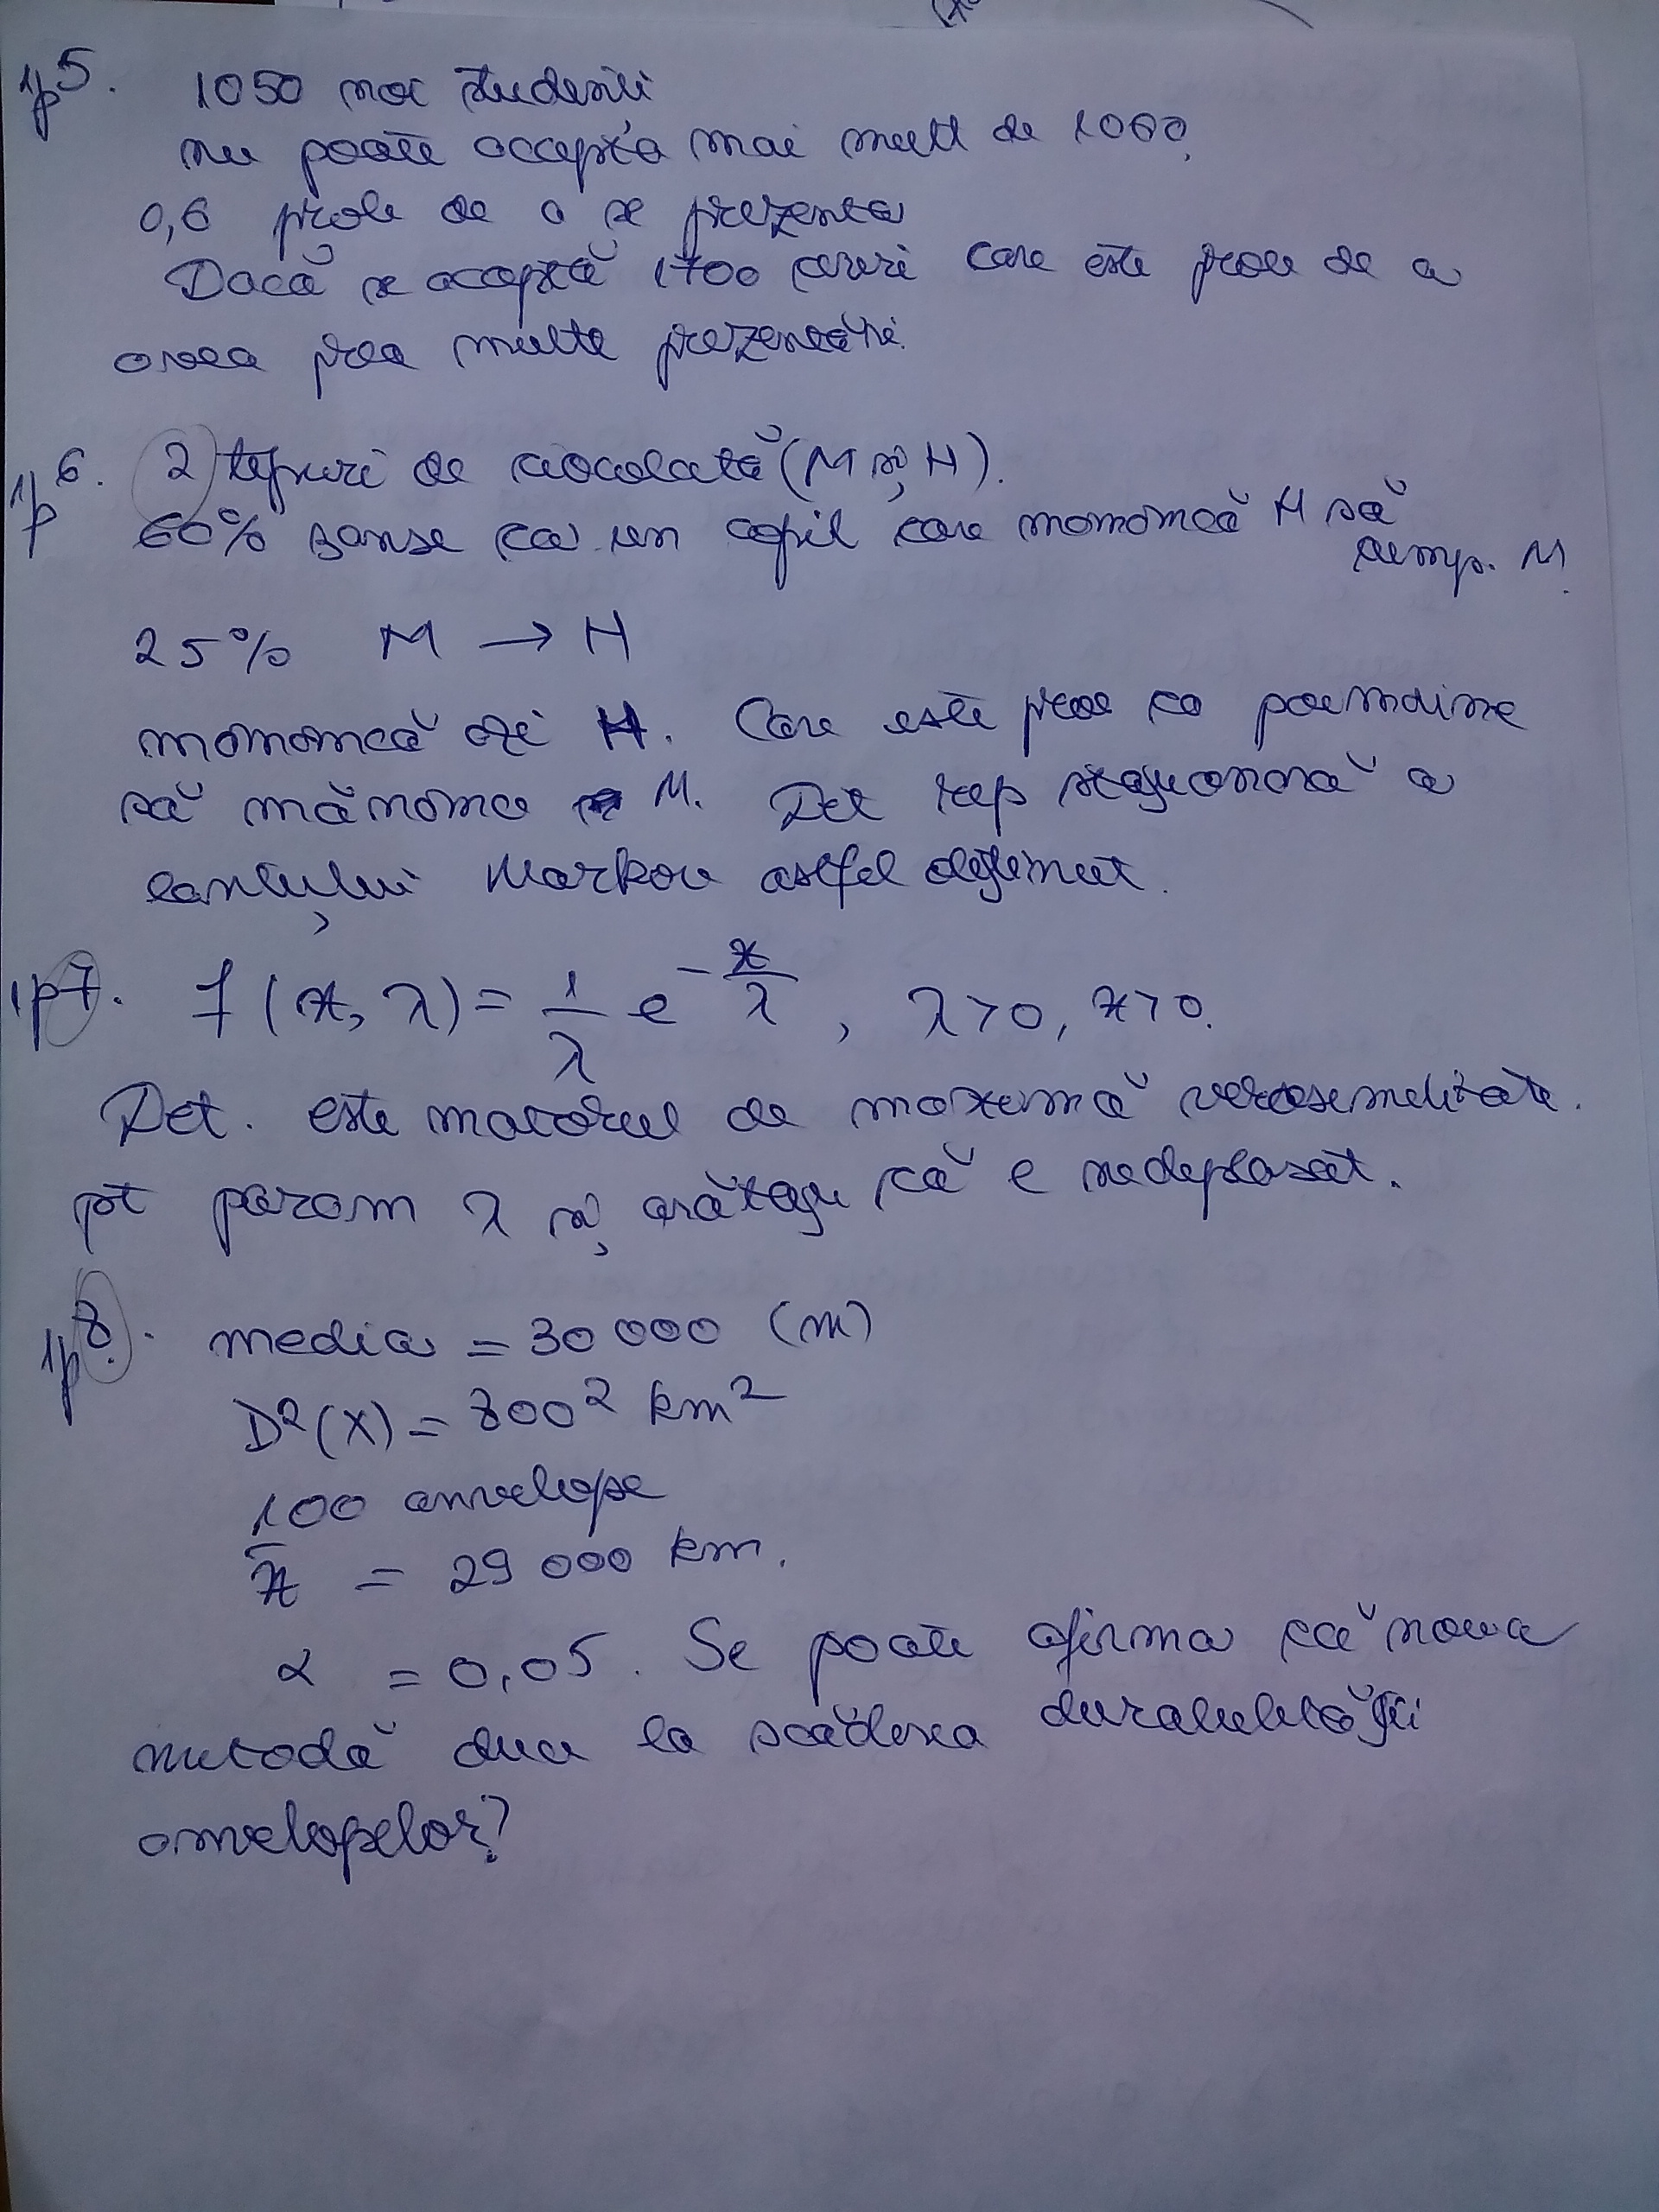 1p 5. 1050 noi studenți
nu poate accepta mai mult de 1060.
0,6 prob de a se prezenta
Dacă se acceptă 1700 cereri care este prob de a
avea prea multe prezentări.
1p 6. 2 tipuri de ciocolată (M și H).
60% șanse ca un copil care mănâncă H să
cump. M.
25% M → H
mănâncă azi H. Care este prob ca poimâine
să mănânce M. Det rep staționară a
lanțului Markov astfel obținut.
1p 7. f(x, λ) = 1/λ e^(-x/λ), λ>0, x>0.
Det. estimatorul de maximă verosimilitate.
pt param λ și arătați că e nedeplasat.
1p 8. media = 30 000 (m)
D²(X) = 800² km²
100 anvelope
x̄ = 29 000 km.
α = 0,05. Se poate afirma că noua
metodă duce la scăderea durabilității
anvelopelor?